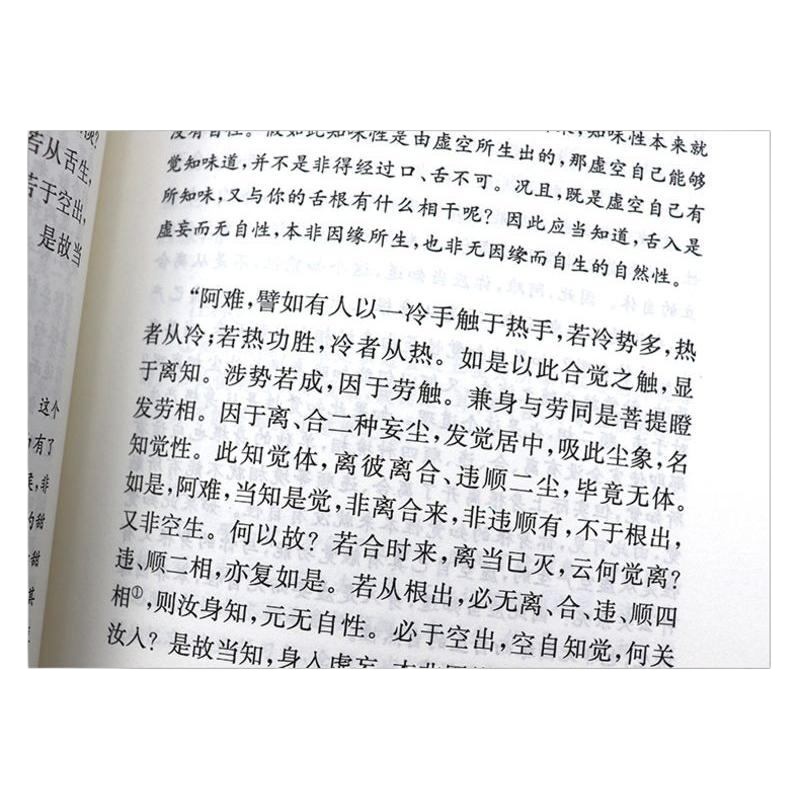 若从舌生,
若于空出,
是故当
这个
有了
,非
的甜
甜
其
没有自性。假如此知味性是由虚空所生出的,那虚空自己能够
知味性本来就
觉知味道,并不是非得经过口、舌不可。况且,既是虚空自己有
所知味,又与你的舌根有什么相干呢?因此应当知道,舌入是
虚妄而无自性,本非因缘所生,也非无因缘而自生的自然性。
“阿难,譬如有人以一冷手触于热手,若冷势多,热
者从冷;若热功胜,冷者从热。如是以此合觉之触,显
于离知。涉势若成,因于劳触。兼身与劳同是菩提瞪
发劳相。因于离、合二种妄尘,发觉居中,吸此尘象,名
知觉性。此知觉体,离彼离合、违顺二尘,毕竟无体。
如是,阿难,当知是觉,非离合来,非违顺有,不于根出,
又非空生。何以故?若合时来,离当已灭,云何觉离?
违、顺二相,亦复如是。若从根出,必无离、合、违、顺四
相①,则汝身知,元无自性。必于空出,空自知觉,何关
汝入?是故当知,身入虚妄,本非因